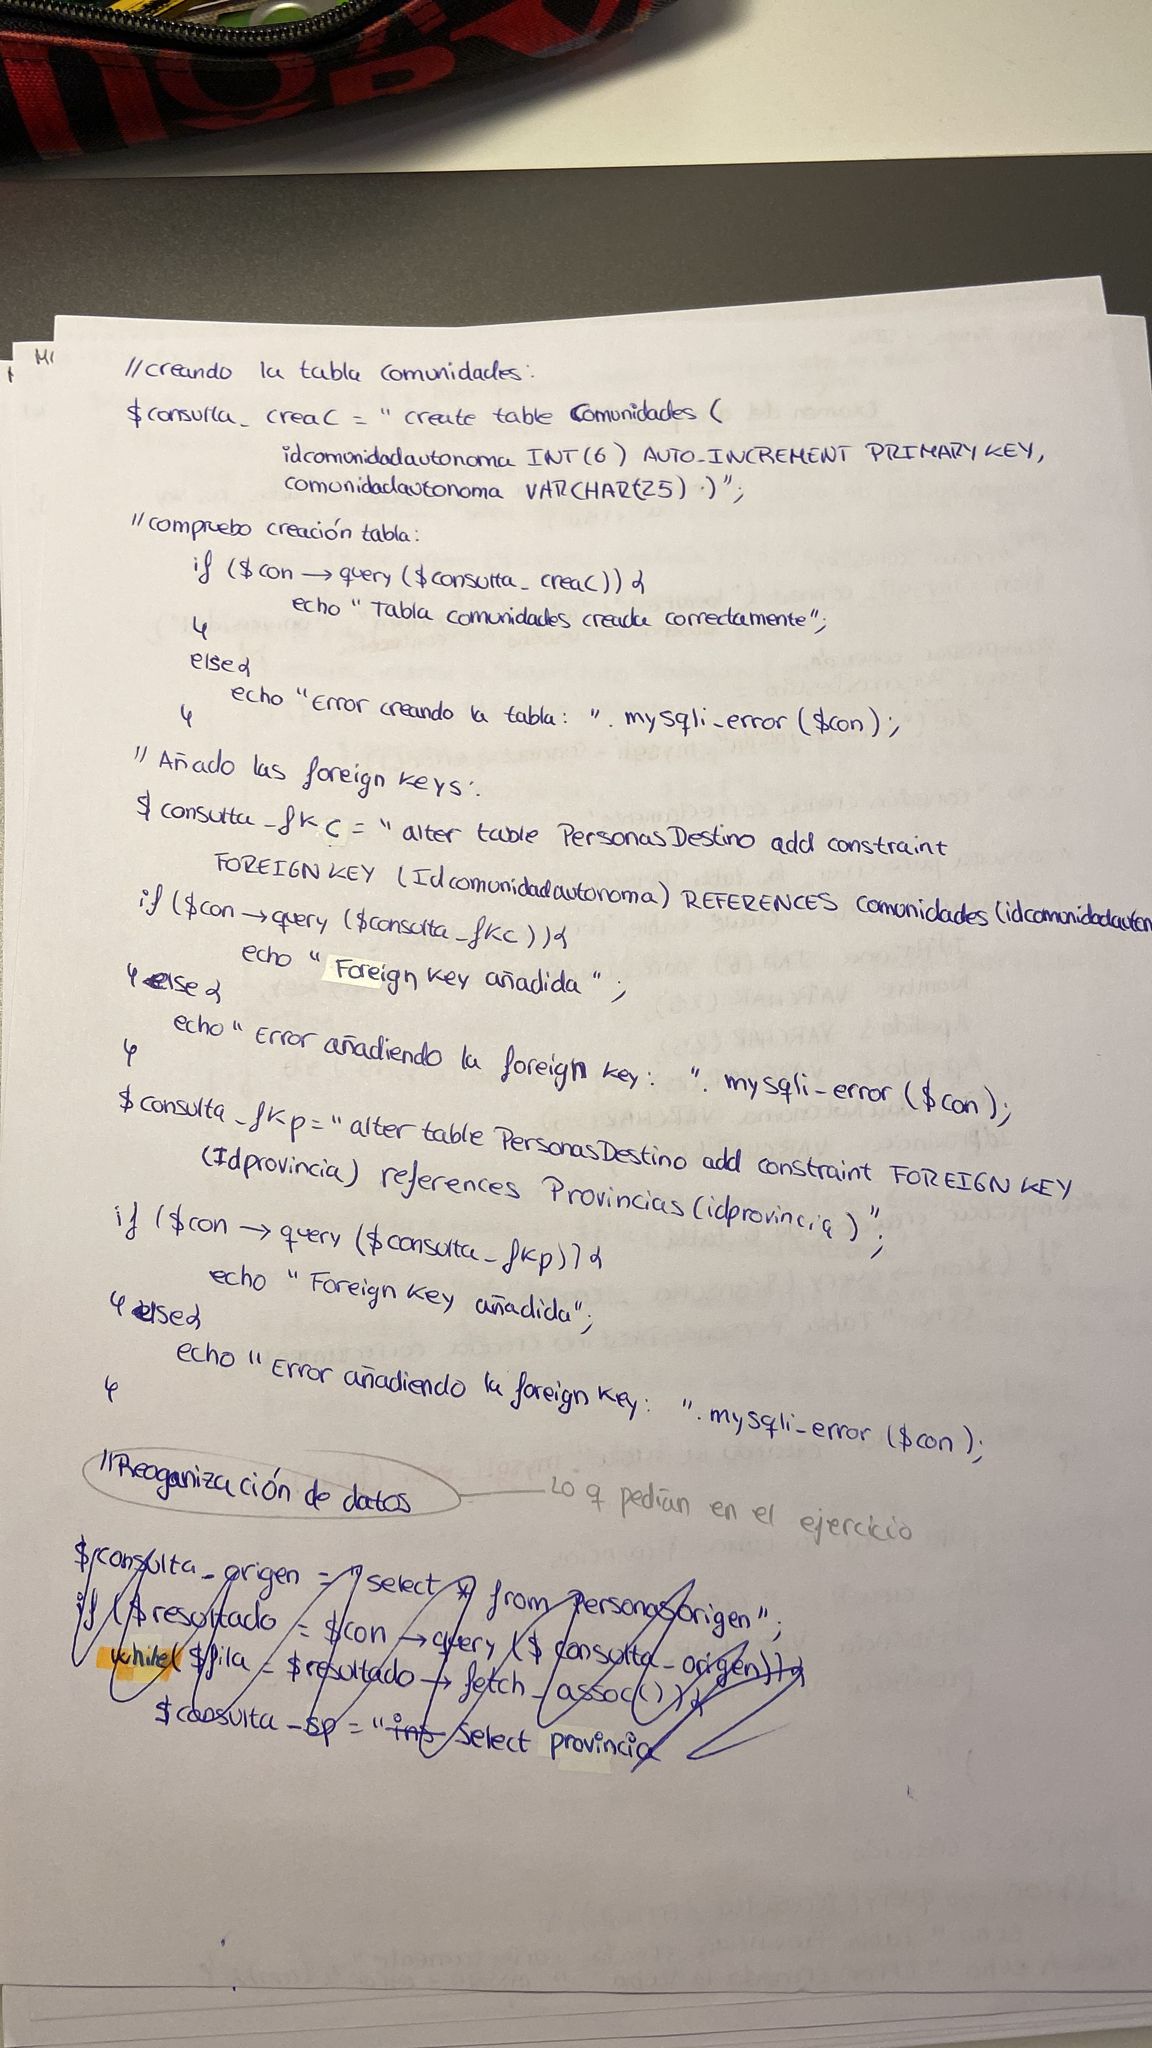 //creando la tabla comunidades:
$consulta_creaC = " create table Comunidades (
idcomunidadautonoma INT(6) AUTO_INCREMENT PRIMARY KEY,
comunidadautonoma VARCHAR(25) )";
//compruebo creación tabla:
if ($con → query ($consulta_creaC)) {
echo "Tabla comunidades creada correctamente";
}
else{
echo "Error creando la tabla: ". mysqli_error ($con);
}
// Añado las foreign keys:
$consulta_fkC = "alter table PersonasDestino add constraint
FOREIGN KEY (Idcomunidadautonoma) REFERENCES comunidades (idcomunidadauton
if ($con → query ($consulta_fkc)){
echo "Foreign key añadida";
} else {
echo "Error añadiendo la foreign key: ". mysqli_error ($con);
}
$consulta_fkp = "alter table PersonasDestino add constraint FOREIGN KEY
(Idprovincia) references Provincias (idprovincia)";
if ($con → query ($consulta_fkp)) {
echo "Foreign key añadida";
} else{
echo "Error añadiendo la foreign key: ". mysqli_error ($con);
}
//Reoganización de datos — Lo q pedían en el ejercicio
$consulta_origen = "select * from PersonasOrigen";
if ($resultado = $con → query ($consulta_origen)){
while( $fila = $resultado → fetch_assoc()){
$consulta_sp = "ins select provincia